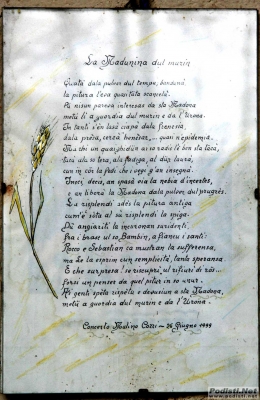 La Madunina dul murin
Quatà dala pulver dul tempu, bandunà
la pitura l'eva quasi tuta scancelà.
Pü nisün pareva interesàs da sta Madona
metü lì a guardia dul murin e da l'Urona.
In tanti s'en lasà ciapà dala frenesia,
dala prèsa, cercà benèsar, ... quasi n'epidemia.
Ma chi un quaighidün ai so radis l'è ben sta tacà,
l'atacà ala tera, ala fadiga, al dür laurà,
cun in cör la fede che i vegg gh'an insegnà.
Inscì, decis, an spazà via la nebia d'incertes,
e an liberà la Madona dala pulver dul prugrès.
La risplendi sdès la pitura antiga
cum'è sota al sù risplendi la spiga.
Dü angiurit la incoronan suridenti,
fra i brasc ul so Bambin, a fiancu i santi:
Rocco e Sebastian ca mustran la sufferensa,
ma Le la esprim cun semplicità, tanta speransa
E che surpresa! so riscupri, ul rifiurì di ròs...
forsi un penser da quel pitur in so unur.
Ma genti spèta rispètu e devusiun a sta Madona,
metü lì a guardia dul murin e da l'Urona.
Concerto Mulino Cozzi - 26 Giugno 1999
Podisti.Net
www.podisti.net